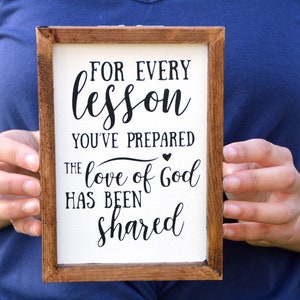 FOR EVERY
lesson
YOU'VE PREPARED
THE love of God
HAS BEEN
shared